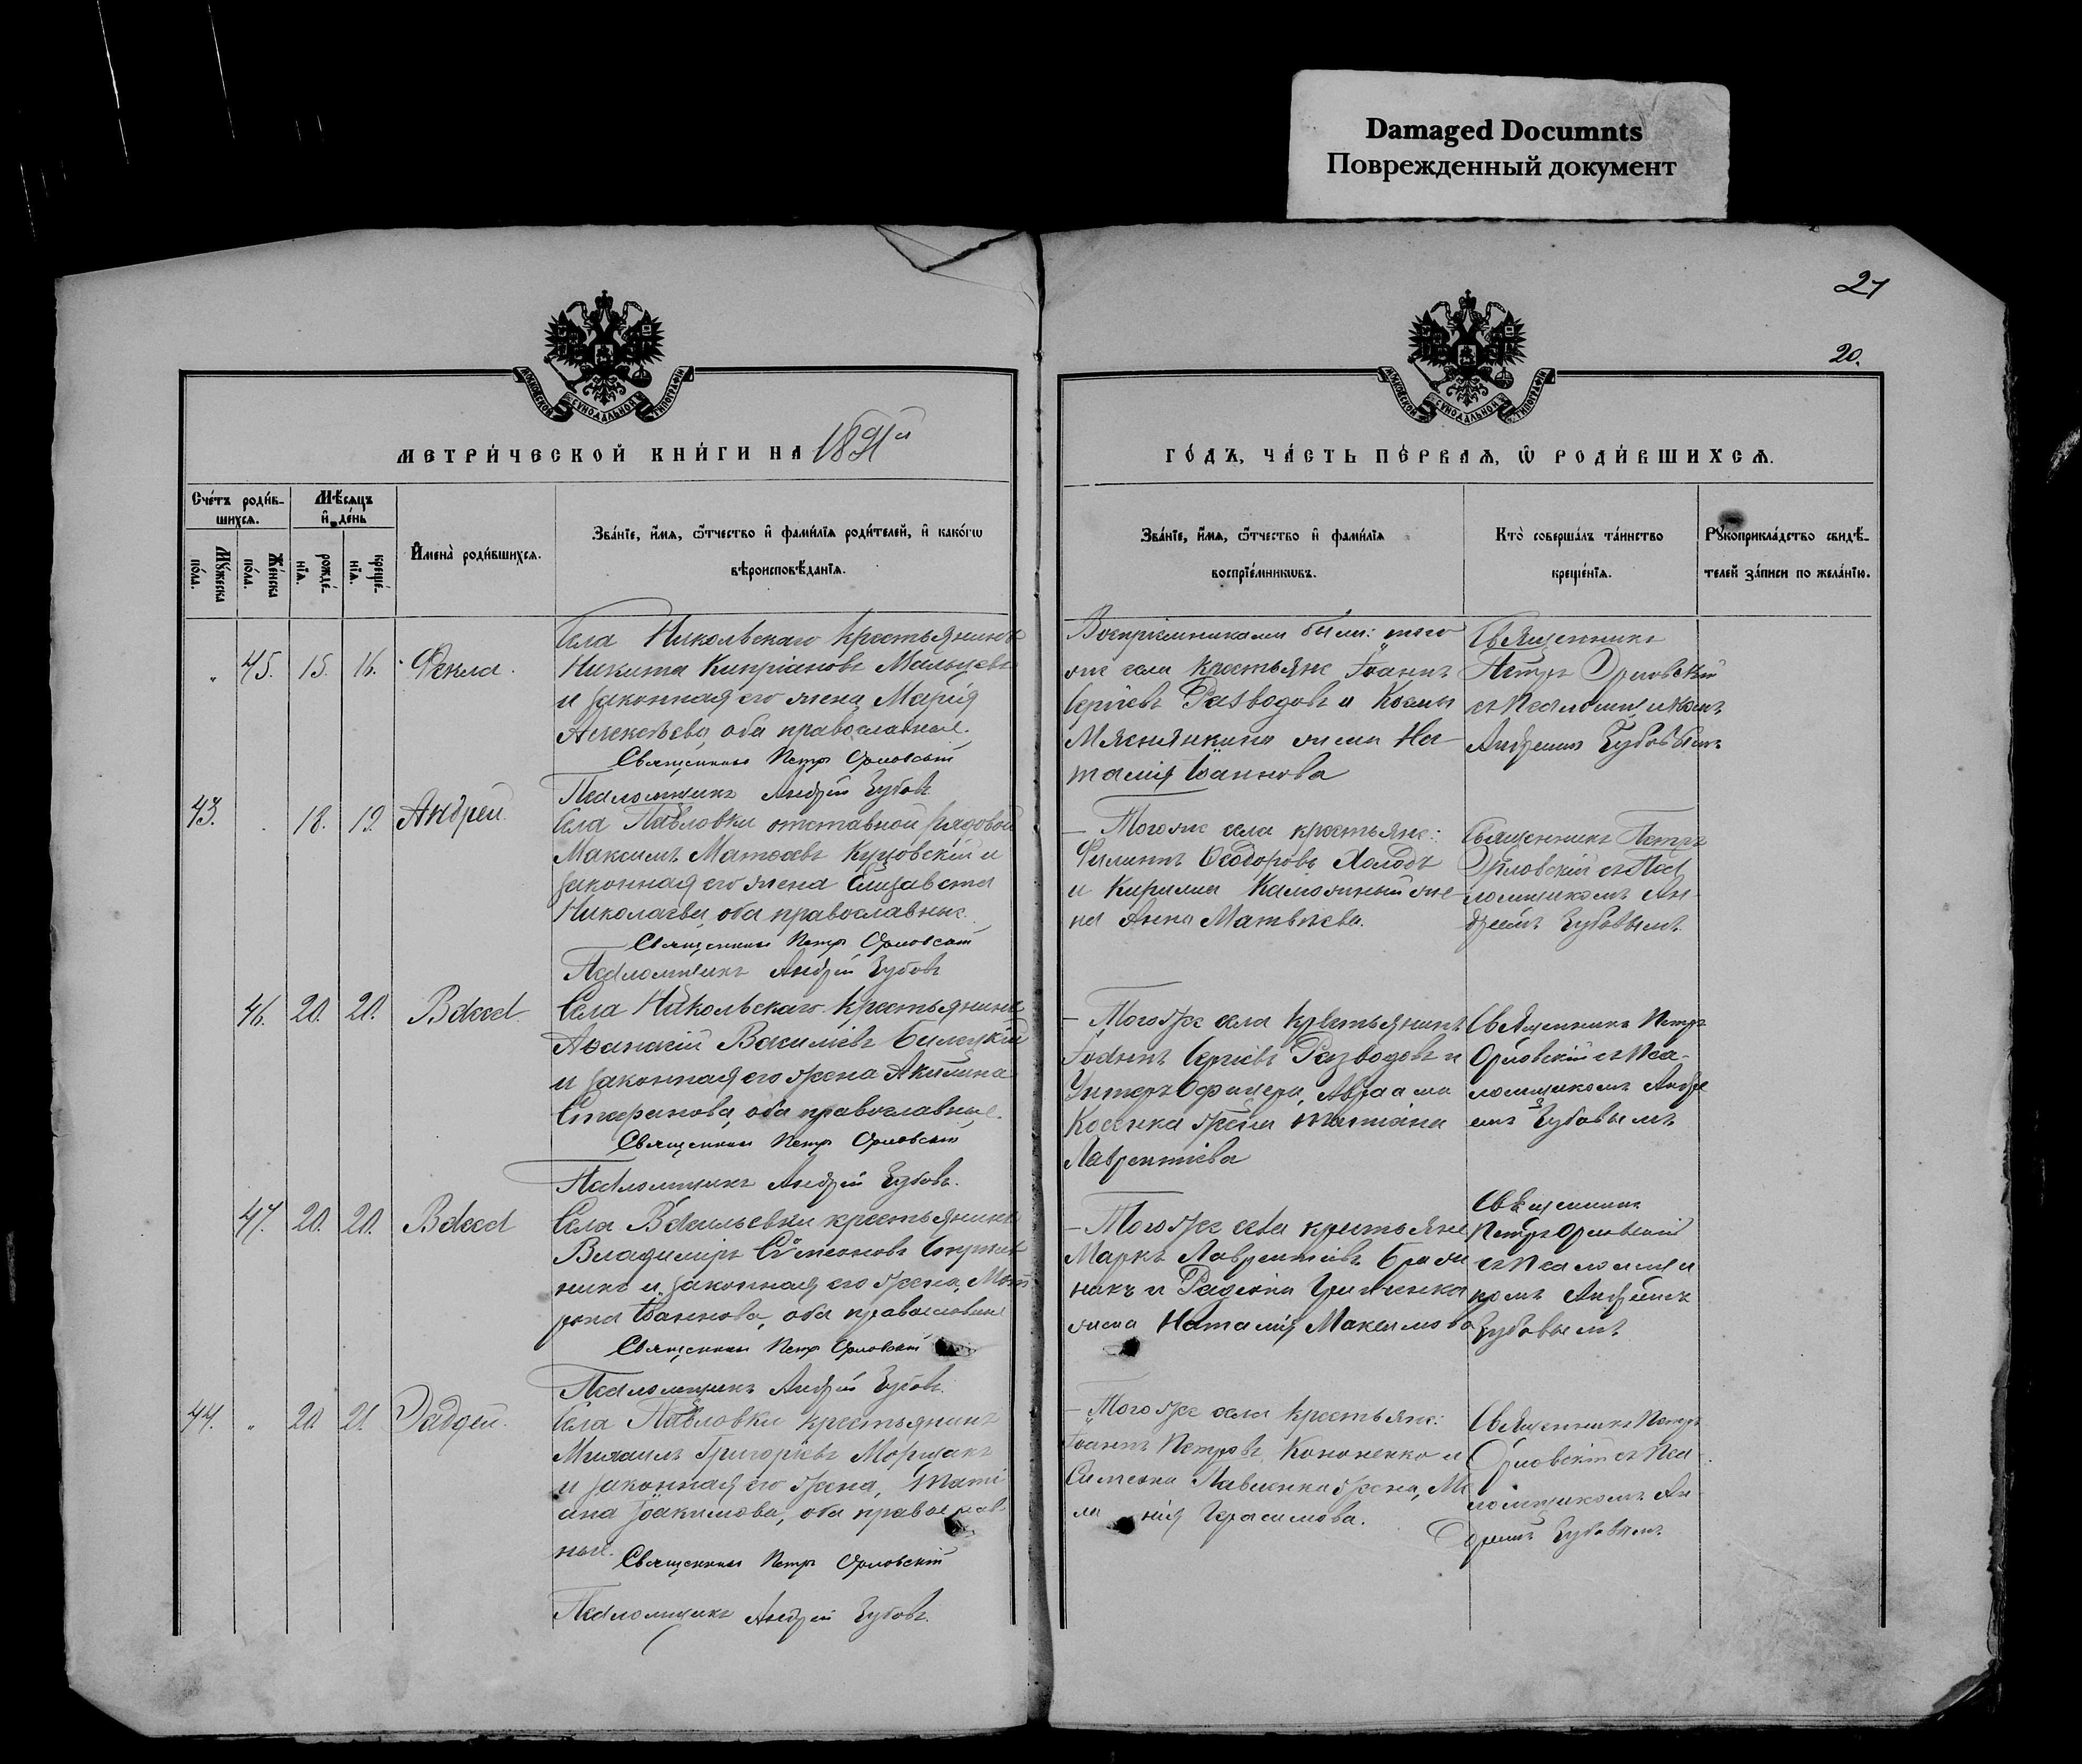 Damaged Documnts
Поврежденный документ
21
20.
МОСКОВСКОЙ СУНОДАЛЬНОЙ ТИПОГРАФІИ
МОСКОВСКОЙ СУНОДАЛЬНОЙ ТИПОГРАФІИ
МЕТРИ́ЧЕСКОЙ КНИ́ГИ НА 1891й
ГО́ДЪ, ЧА́СТЬ ПЕ́РВАѦ, Ѡ РОДИ́ВШИХСѦ.
Сче́тъ роди́в-
шихсѧ.
Мꙋ́жеска
по́ла.
Же́нска
по́ла.
Мѣ́сѧцъ
и҆ де́нь
рожде́-
нїѧ.
креще́-
нїѧ.
И҆мена̀ роди́вшихсѧ.
Зва́нїе, и҆́мѧ, ѻ҆́тчество и҆ фами́лїѧ роди́телей, и҆ како́гѡ
вѣроисповѣ́данїѧ.
Зва́нїе, и҆́мѧ, ѻ҆́тчество и҆ фами́лїѧ
воспрїе́мникѡвъ.
Кто̀ соверша́лъ та́инство
креще́нїѧ.
Рꙋкоприкла́дство свидѣ́-
телей за́писи по жела́нїю.
" 45. 15. 16. Фекла.
Села Никольскаго крестьянинъ
Никита Кипріановъ Мальцевъ
и законная его жена Марія
Алексѣева, оба православные.
Священникъ Петръ Орловскій
Псаломщикъ Андрей Зубовъ
Воспріемниками были: того
же села крестьяне Іоаннъ
Сергіевъ Разводовъ и Космы
Мяснянкина жена На-
талія Іоаннова
Священникъ
Петръ Орловскій
съ Псаломщикомъ
Андреемъ Зубовымъ
43. . 18. 19. Андрей.
Села Павловки отставной рядовой
Максимъ Матѳеевъ Куцовскій и
законная его жена Елизавета
Николаева, оба православные.
Священникъ Петръ Орловскій
Псаломщикъ Андрей Зубовъ
— Того же села крестьяне:
Филиппъ Ѳеодоровъ Холодъ
и Кирилла Калюжный же-
на Анна Матвѣева.
Священникъ Петръ
Орловскій съ Пса
ломщикомъ Ан-
дреемъ Зубовымъ.
46. 20. 20. Васса
Села Никольскаго крестьянинъ
Аѳанасій Василіевъ Билецкій
и законная его жена Акилина
Стефанова, оба православные.
Священникъ Петръ Орловскій
Псаломщикъ Андрей Зубовъ.
— Того же села крестьянинъ
Іоаннъ Сергіевъ Разводовъ и
Унтеръ Офицера, Авраама
Косенка жена Татіана
Лаврентіева
Священникъ Петръ
Орловскій съ Пса-
ломщикомъ Андре
емъ Зубовымъ
47. 20. 20. Васса
Села Васильевки крестьянинъ
Владиміръ Сѵмеоновъ
никъ и законная его жена, Мат
рона Іоаннова, оба православные
Священникъ Петръ Орловскій
Псаломщикъ Андрей Зубовъ.
— Того же села крестьяне
Маркъ Лаврентіевъ
никъ и Родіона Гритченка
жена Наталія Максимова
Священникъ
Петръ Орловскій
съ Псаломщи
комъ Андреемъ
Зубовымъ
44. " 20. 21. Ѳаддей.
Села Павловки крестьянинъ
Михаилъ Григоріевъ Моргцакъ
и законная его жена, Тати
ана Іоакимова, оба православ-
ные.
Священникъ Петръ Орловскій
Псаломщикъ Андрей Зубовъ.
— Того же села крестьяне:
Іоаннъ Петровъ Кононенко и
Симеона Павленка жена, Ме
ланія Герасимова.
Священникъ Петръ
Орловскій съ Пса
ломщикомъ Ан-
дреемъ Зубовымъ